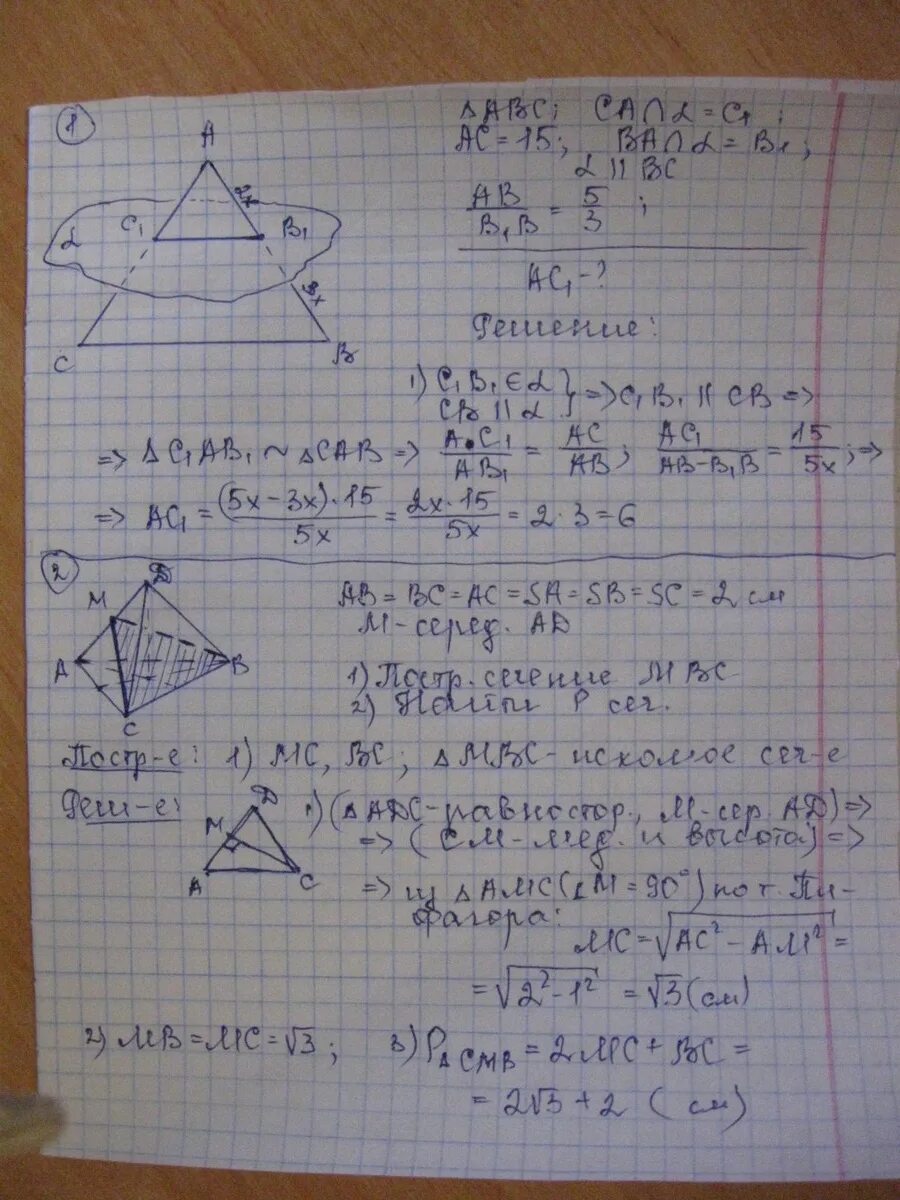 1
△ABC; CA∩α = C₁;
AC = 15; BA∩α = B₁;
α || BC
AB/B₁B = 5/3;
AC₁ - ?
A
2x
C₁
B₁
α
3x
C
B
Решение:
1) C₁B₁ ∈ α } CB || α } => C₁B₁ || CB =>
=> △C₁AB₁ ~ △CAB => AC₁/AB₁ = AC/AB; AC₁/(AB-B₁B) = 15/5x; =>
=> AC₁ = (5x - 3x)·15/5x = 2x·15/5x = 2·3 = 6
2
D
M
A
B
C
AB = BC = AC = SA = SB = SC = 2 см
M - серед. AD
1) Постр. сечение MBC
2) Найти P сеч.
Постр-е: 1) MC, BC; △MBC - искомое сеч-е
Реш-е:
D
M
A
C
1) (△ADC - равностор., M - сер. AD) =>
=> (CM - мед. и высота) =>
=> из △AMC (∠M = 90°) по т. Пи-
фагора:
MC = √(AC² - AM²) =
= √(2² - 1²) = √3 (см)
2) MB = MC = √3; 3) P△CMB = 2MC + BC =
= 2√3 + 2 (см)